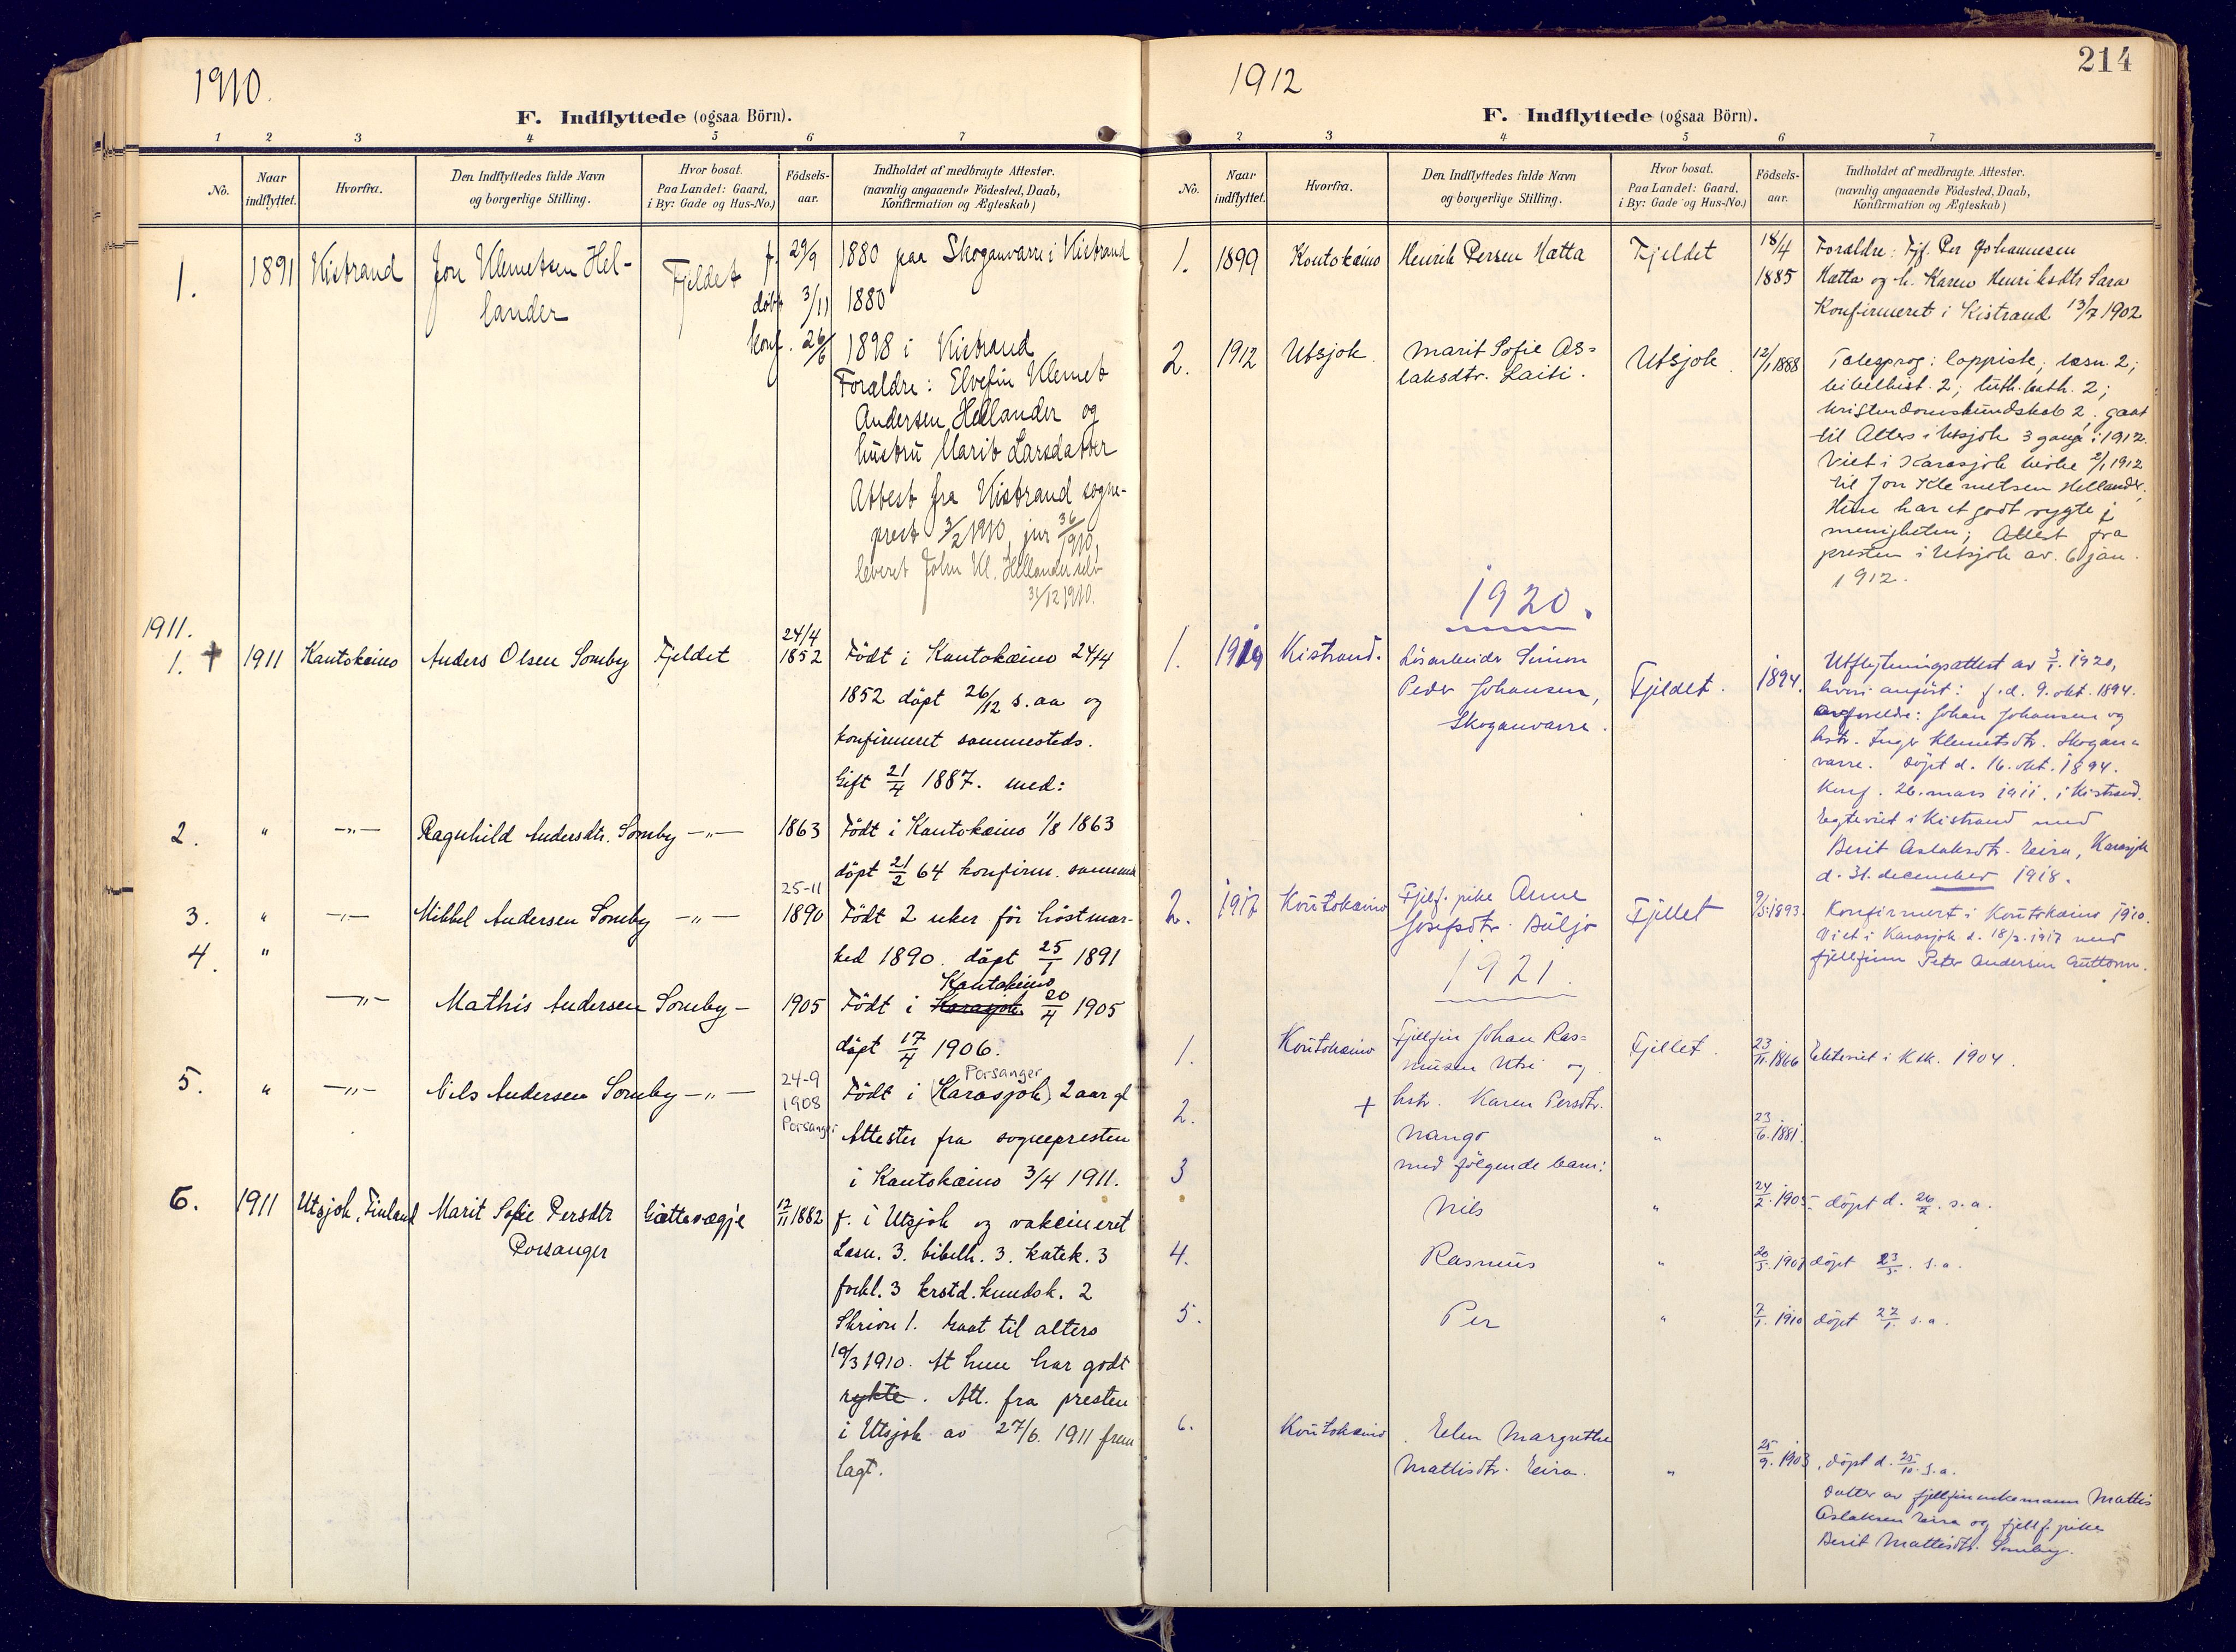 1910.
F. Indflyttede (ogsaa Börn).
1 2 3 4 5 6 7
No.
Naar indflyttet.
Hvorfra.
Den Indflyttedes fulde Navn
og borgerlige Stilling.
Hvor bosat.
Paa Landet: Gaard,
i By: Gade og Hus-No.)
Födsels-
aar.
Indholdet af medbragte Attester.
(navnlig angaaende Födested, Daab,
Konfirmation og Ægteskab)
1. 1891 Kistrand Jon Klemetsen Hel- Fjeldet f. 29/9 1880 paa Skoganvarre i Kistrand
lander döbt 3/11 1880
konf. 26/6 1898 i Kistrand
Forældre: Elvefin Klemet
Andersen Hellander og
hustru Marit Larsdatter
Attest fra Kistrand sogne-
prest 3/2 1910, jnr 36/1910,
leveret John Kl. Hellander selv
31/12 1910.
1911.
1. + 1911 Kautokeino Anders Olsen Somby Fjeldet 24/4 1852 Födt i Kautokeino 24/4
1852 döpt 26/12 s. aa og
konfirmeret sammesteds.
Gift 21/4 1887. med:
2. " —"— Ragnhild Andersdtr. Somby —"— 1863 Födt i Kautokeino 1/8 1863
döpt 21/2 64 konfirm.
3. " —"— Mikkel Andersen Somby —"— 25-11 1890 Födt 2 uker för höstmar-
ked 1890. döpt 25/1 1891
4. " —"— Mathis Andersen Somby — 1905 Födt i Karasjok Kautokeino 20/4 1905
döpt 17/4 1906.
5. " —"— Nils Andersen Somby —"— 24-9 1908 Porsanger Födt i (Karasjok) Porsanger 2 aar gl
Attester fra sognepresten
i Kautokeino 3/4 1911.
6. 1911 Utsjok, Finland Marit Sofie Persdtr Gættevægje 12/11 1882 f. i Utsjok og vakcineret
Porsanger Læsn. 3. bibelh. 3. katek. 3
forkl. 3 krstd. kundsk. 2
Skrivn 1. Gaat til alters
19/3 1910. At hun har godt
rykte. Att. fra presten
i Utsjok av 27/6. 1911 frem
lagt.
1912
214
F. Indflyttede (ogsaa Börn).
2 3 4 5 6 7
No.
Naar
indflyttet.
Hvorfra.
Den Indflyttedes fulde Navn
og borgerlige Stilling.
Hvor bosat.
Paa Landet: Gaard,
i By: Gade og Hus-No.)
Födsels-
aar.
Indholdet af medbragte Attester.
(navnlig angaaende Födested, Daab,
Konfirmation og Ægteskab)
1. 1899 Koutokeino Henrik Persen Hætta Fjeldet 18/4 1885 Forældre: Fjf. Per Johannesen
Hætta og h. Karen Henriksdtr Sara
Konfirmeret i Kistrand 13/7 1902
2. 1912 Utsjok. Marit Sofie As- Utsjok. 12/1 1888 Talesprog: lappiske, læsn. 2;
laksdtr. Laiti. bibelhist. 2; luth. kath. 2;
kristendomskundskab 2; gaat
til Alters i Utsjok 3 gange i 1912.
Viet i Karasjok kirke 2/1 1912
til Jon Klemetsen Hellander.
Hun har et godt rygte i
menigheten; Attest fra
presten i Utsjok av. 6 jan.
1912.
1920.
1. 1919 Kistrand. Lösarbeider Simon Fjeldet. 1894. Utflytningsattest av 3/1. 1920,
Peder Johansen, hvori anfört: f. d. 9. okt. 1894.
Skoganvarre. av forældre: Johan Johansen og
hstr. Inger Klemetsdtr. Skogan-
varre. Döpt d. 16. okt. 1894.
Konf. 26. mars 1911. i Kistrand.
Egteviet i Kistrand med
Berit Aslaksdtr. Eira, Karasjok
d. 31. december 1918.
2. 1917 Koutokeino Fjelf. pike Anne Fjellet 9/5.1893. Konfirmert i Koutokeino 1910.
Josefsdtr. Buljo Viet i Karasjok d. 18/3. 1917 med
fjellfinn Peter Andersen Guttorm.
1921.
1. Koutokeino Fjellfin Johan Ras- Fjellet. 23/11.1866 Ekteviet i Ktk. 1904.
musen Utsi og
2. + hstr. Karen Persdtr.
Nango " 23/6.1881.
3 med fölgende barn:
Nils " 24/2.1905. döpt d. 26/2. s.a.
4. Rasmus " 20/5.1907 döpt 23/5. s.a.
5. Per " 7/1.1910 döpt 27/1. s.a.
6. Koutokeino Ellen Margrethe
Mattisdtr. Eira. " 25/9.1903, döpt d. 25/10. s.a.
Datter av fjellfinenkemann Mattis
Aslaksen Eira og fjellf. pike
Berit Mattisdtr. Somby.